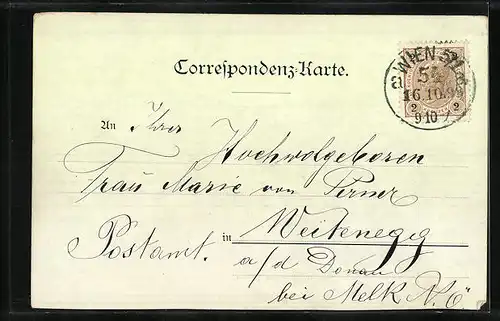 WIEN
5
16.10.99
9 10
2 2
Correspondenz-Karte.
An Ihrer
Hochwolgeboren
Frau Marie von Perner
Postamt. in Weitenegg
a/d Donau
bei Melk N.Ö.